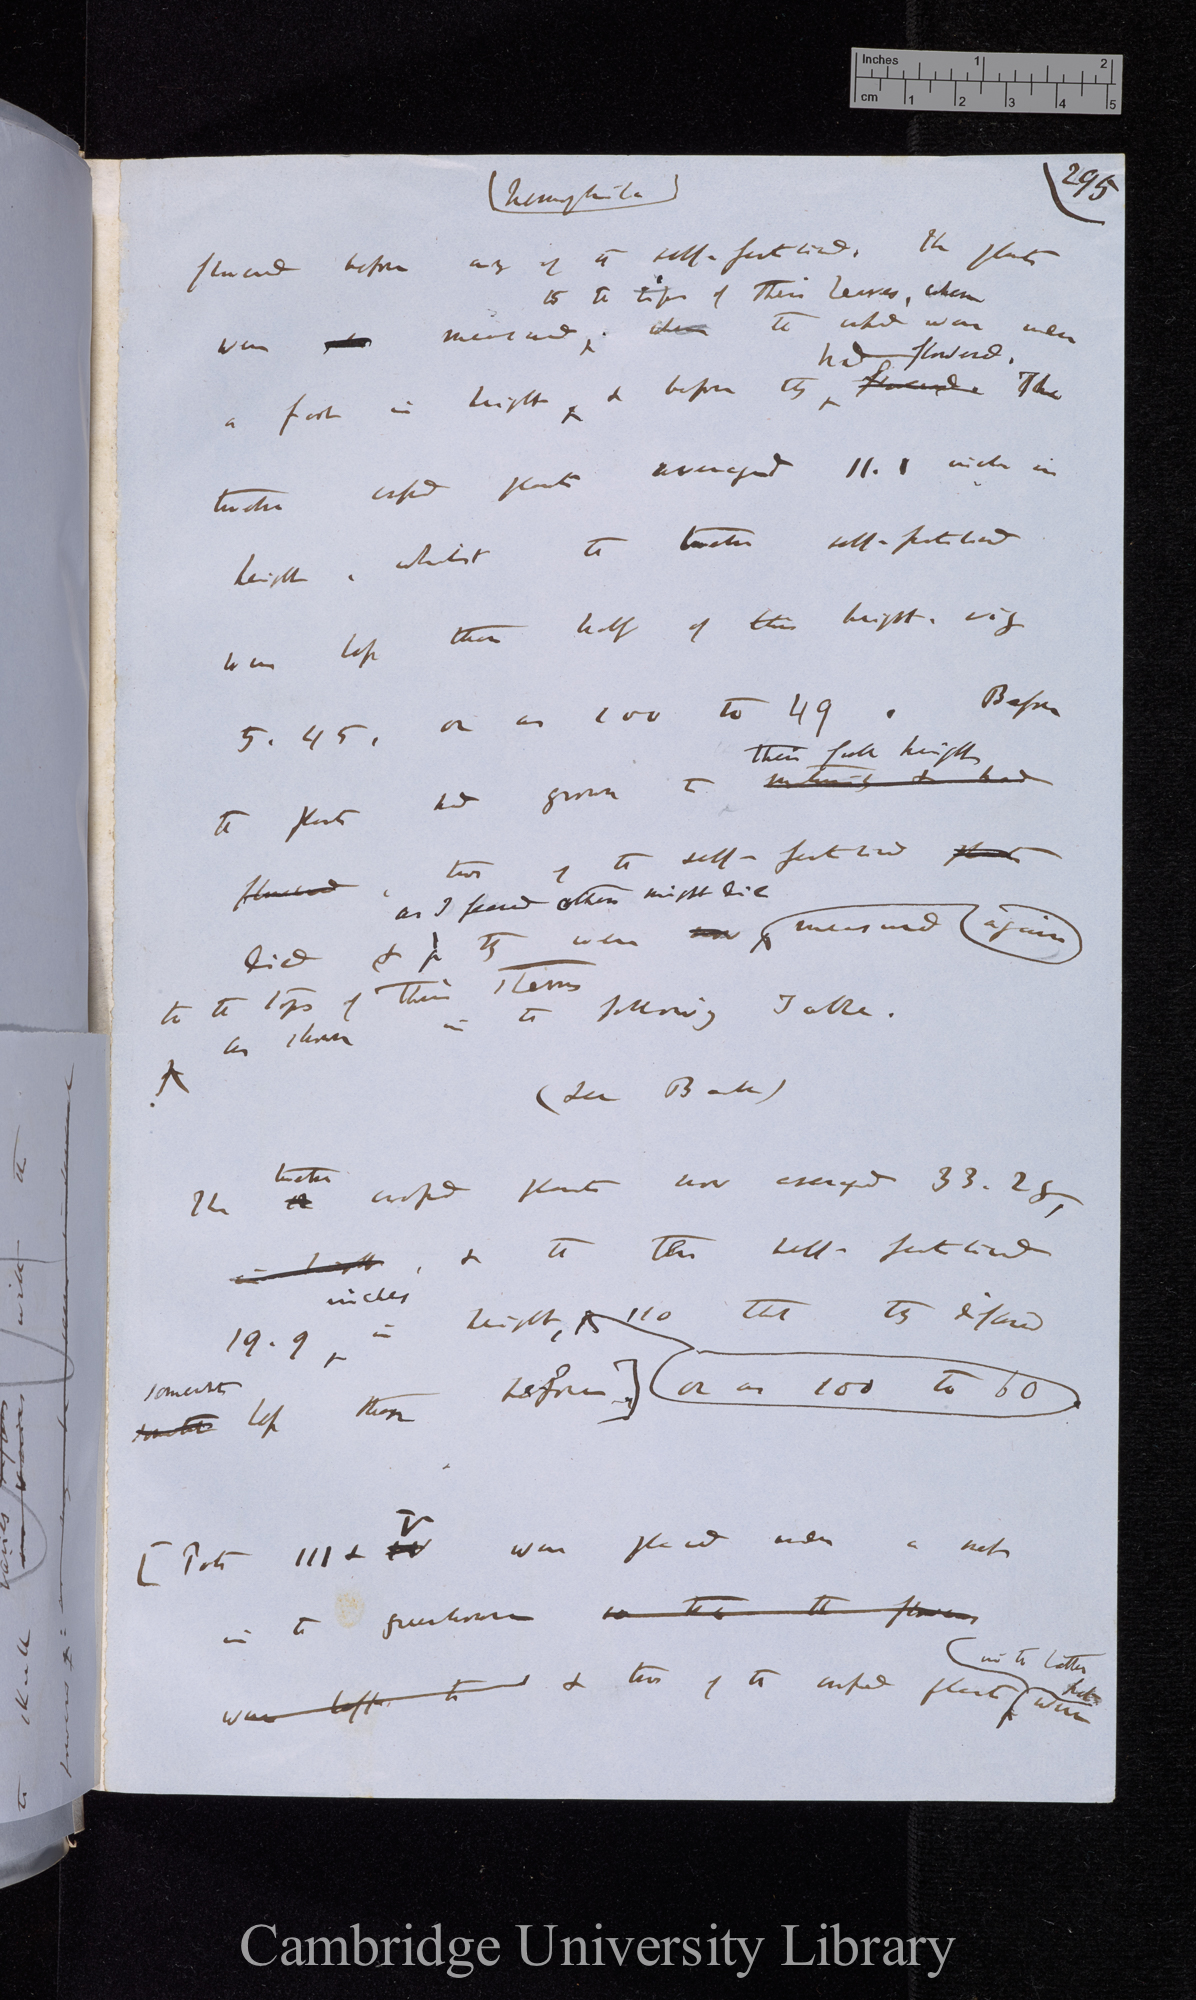 Inches 1 2
cm 1 2 3 4 5
295
(Nemophila)
flowered before any of the self-fertilised. The plants
to the tips of their leaves, when
were measured, when the crossed were under
had flowered.
a foot in height, & before they flowered. The
twelve crossed plants averaged 11.1 inches in
height, whilst the twelve self-fertilised
were less than half of this height. viz
5.45, or as 100 to 49. Before
their full height
the plants had grown to maturity & had
flowered, two of the self-fertilised plants
as I feared others might die
died & they were now measured again
to the tops of their stems
as shown in the following Table.
(See Back)
twelve
The the crossed plants now averaged 33.28,
in height, & the ten self-fertilised
inches
19.9, in height, so that they differed
or as 100 to 60
somewhat
less than before]
V
[Pots III & IV were placed under a net
in the greenhouse so that the flowers
in the latter pot
were & two of the crossed plants were
Cambridge University Library